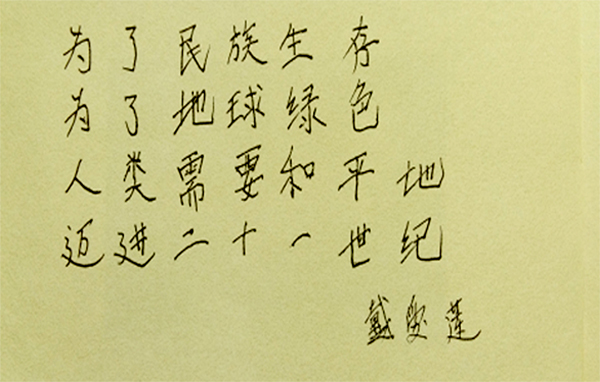 为了民族生存
为了地球绿色
人类需要和平地
迈进二十一世纪
戴爱莲